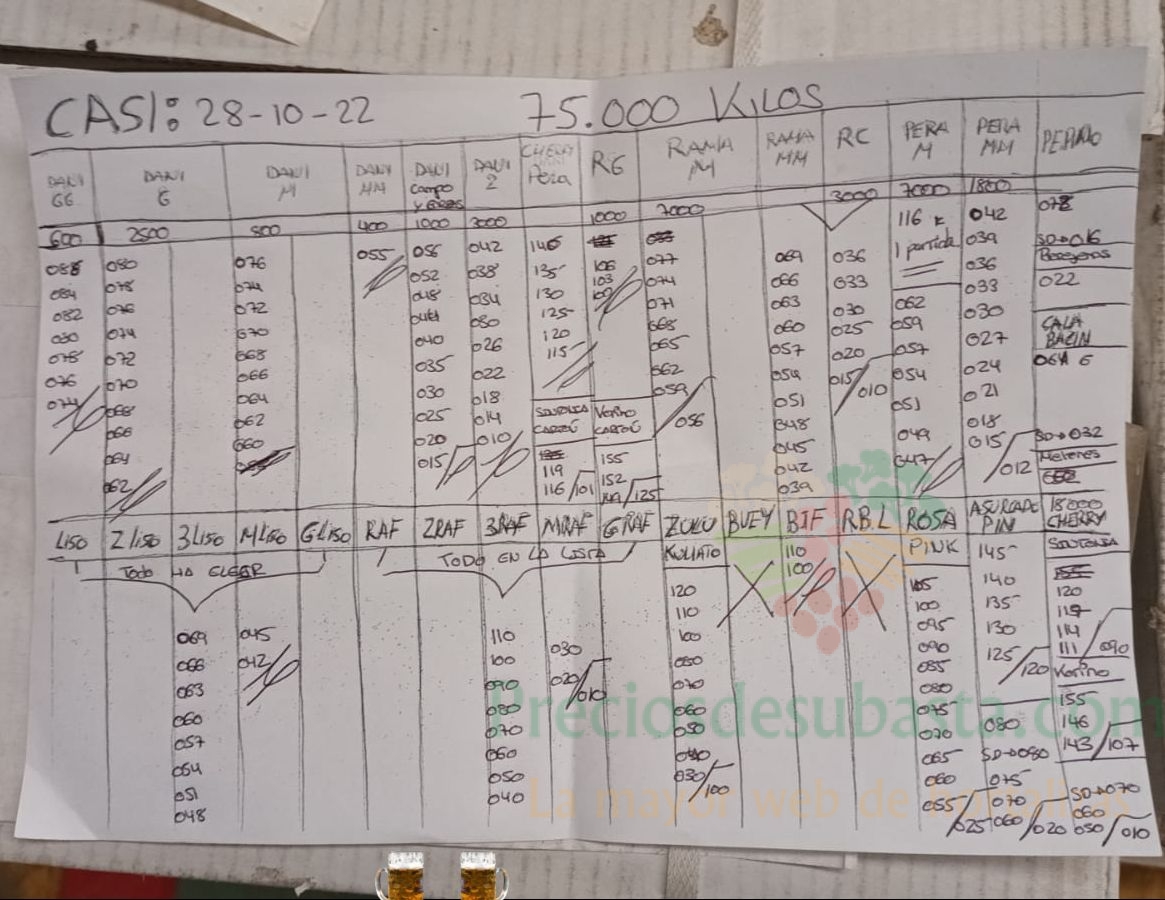 CASI: 28-10-22 75.000 KILOS
DANI GG DANI G DANI M DANI MM DANI Campo DANI 2 Pera RG RAMA M RAMA MM RC PERA M PERA MM PEPINO
600 2500 800 400 1000 3000 1000 7000 3000 7000 1800
088 080 076 055 056 042 140 069 036 116 K 042 078
084 078 074 052 038 135 106 077 066 033 1 partida 039 SD→016
082 076 072 048 034 130 103 074 063 030 062 036 022
080 074 070 044 030 125 071 060 025 059 033 CALA
078 072 068 040 026 120 068 057 020 057 030 BACIN
076 070 066 035 022 115 065 054 015/010 054 027 064 G
074 068 064 030 018 062 051 051 024
066 062 025 014 CARTON Verino CARTON 059/056 048 049 021
064 060 020 010 119 155 045 047 018 SD→032
062 015 116/101 152 042 015/012 Melenes
/125 039
LISO 2 LISO 3 LISO M LISO G LISO RAF 2RAF 3RAF MRAF GRAF ZULU BUEY BIF R.B.L ROSA PIN 18000 CHERRY
Todo HA ELEGIR TODO EN LA LISTA KUMATO 110 PINK 145
100 105 140 120
120 100 135 117
110 095 130 114
069 045 110 030 100 090 125/120 111/090
066 042 100 020/010 080 085 Verino
063 090 070 080 155
060 080 060 075 080 146
057 070 050 070 SD→080 143/107
054 060 040 065 075 SD→070
051 050 030/100 060 070 060
048 040 055/025 060/020 050/010
Preciosdesubasta.com
La mayor web de